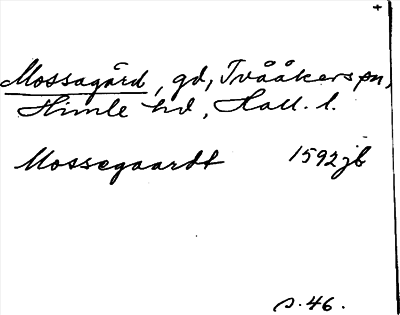 +
Mossagård, gd, Tvååkers sn,
Himle hd, Hall. l.
Mossegaardt 1592 jb
s. 46.